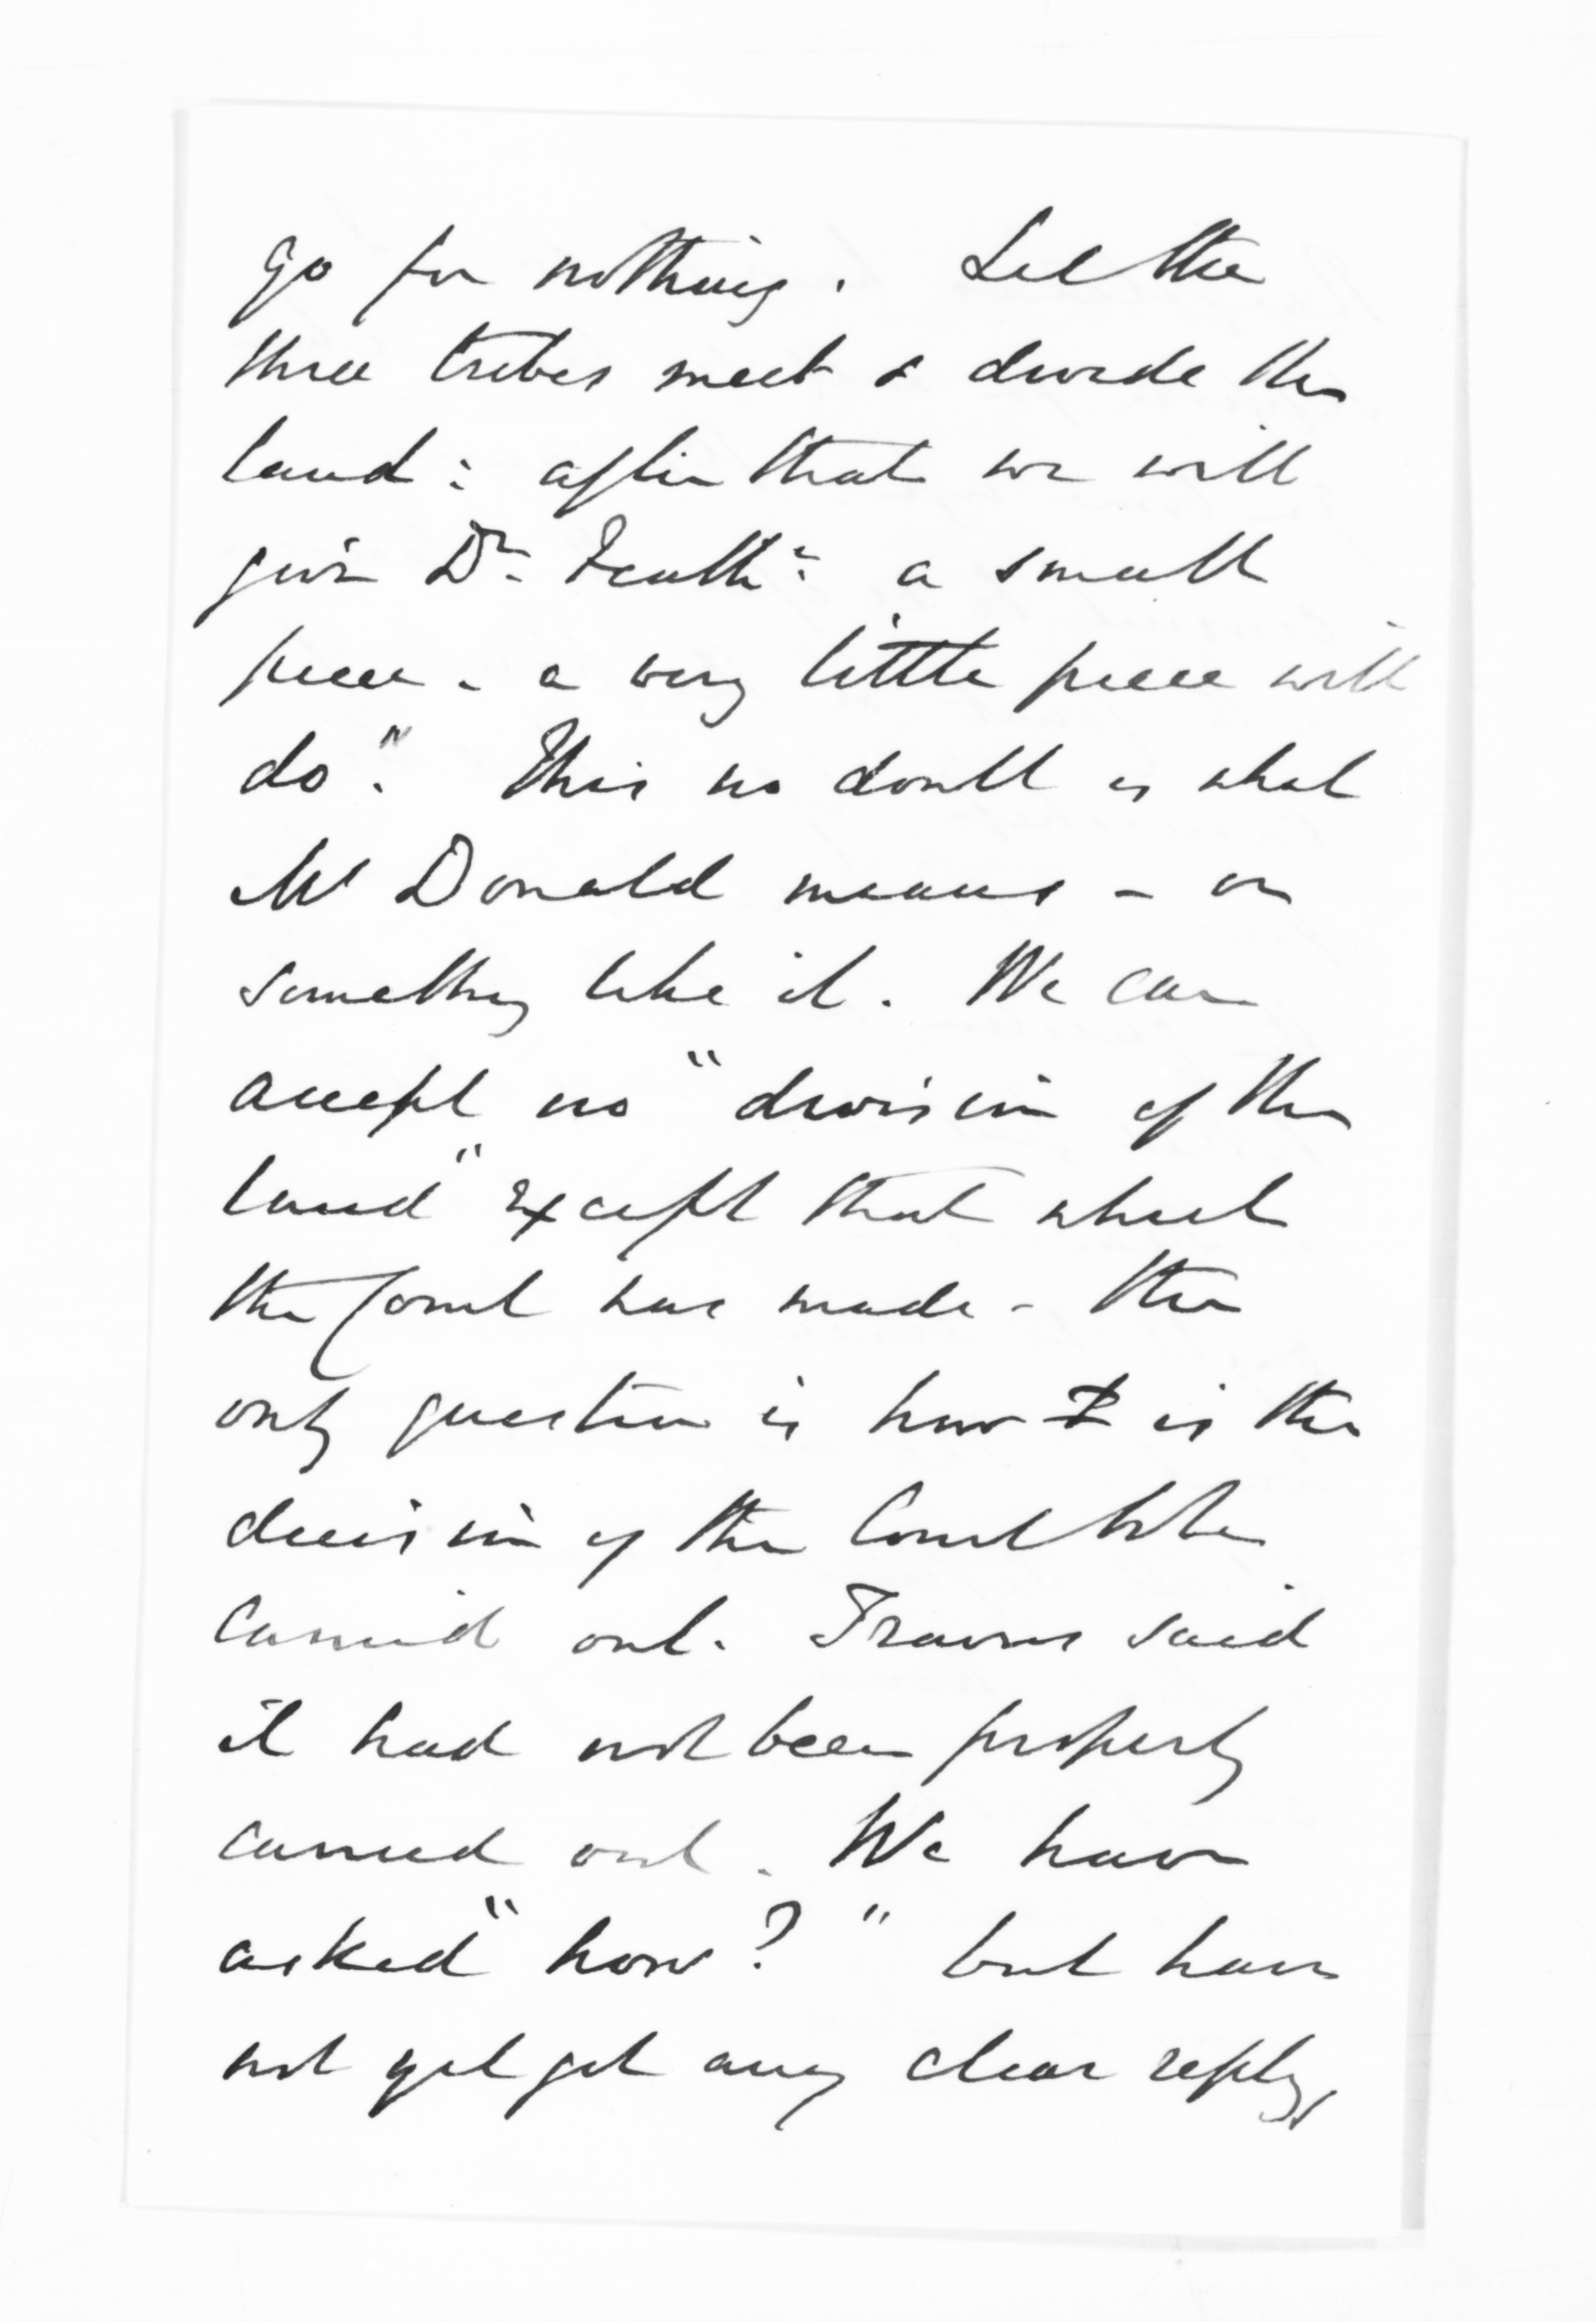 go for nothing. Let the
three tribes meet & divide the
land: after that we will
give Dr. Feathn: a small
piece - a very little piece will
do." This no doubt is what
McDonald means - or
something like it. We can
accept no "division of the
land" except that which
the Court has made - the
only question is how is the
decision of the Court to be
carried out. Travers said
it had not been properly
carried out. We have
asked "how?" but have
not yet got any clear reply,